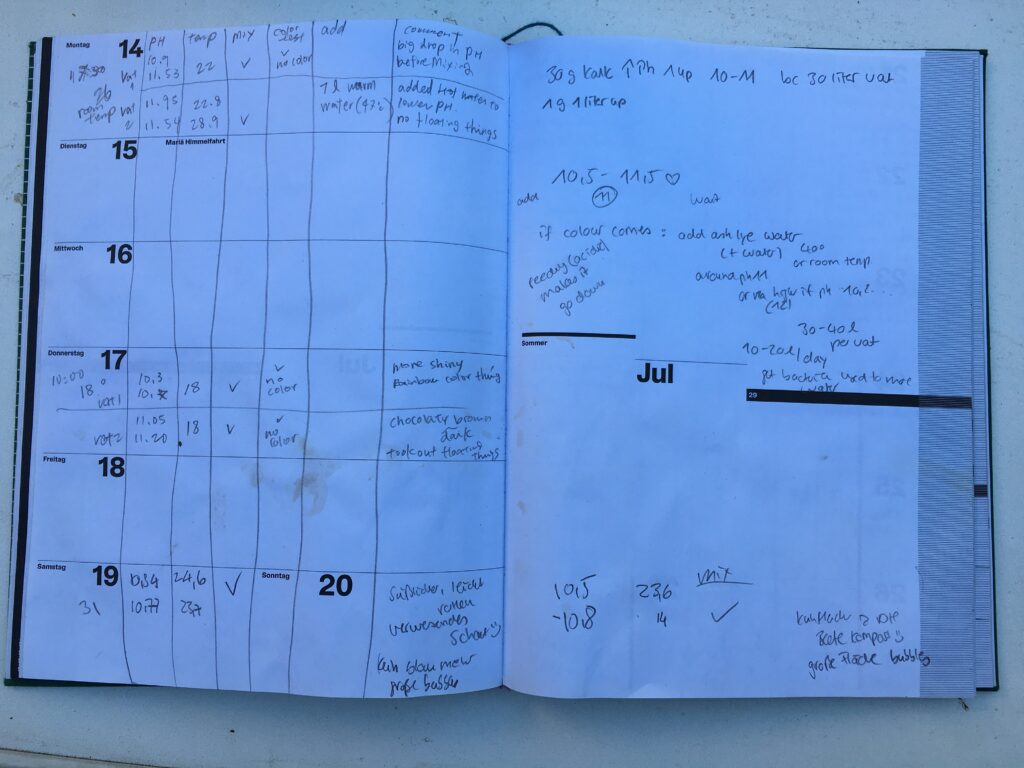 Montag
14
PH temp mix color test add comment
10.9
11.53 22 ✓ ✓ no color big drop in PH before mixing
vat 1
26 room temp
vat 2 11.95 22.8
11.54 28.9 ✓
water (47°) added Hot water to lower PH.
no floating things
Dienstag
15
Mariä Himmelfahrt
Mittwoch
16
Donnerstag
17
10:00
18° vat 1
10.3
18 ✓ ✓ no color
more shiny
Rainbow color thing
vat 2
11.05
11.20 18 ✓ ✓ no color
chocolaty brown
dark
took out floating things
Freitag
18
Samstag
19
31
24,6 ✓
10.77 23,7
Sonntag
20
leicht
verwesendes
Kein blau mehr
große bubbles
30 g Kalk ↑ Ph 1 up 10-11 bc 30 liter vat
1 g 1 liter up
10,5 - 11,5 ♡
11
add wait
if colour comes : add ash lye water
(+ water) 40°
or room temp
around ph 11
reeding (acidic)
makes it
go down
30-40 l
per vat
10-20 l / day
get bacteria used to more
water
Sommer
Jul
29
mix
10,5 23,6
-10,8 ✓
große Fläche bubbles